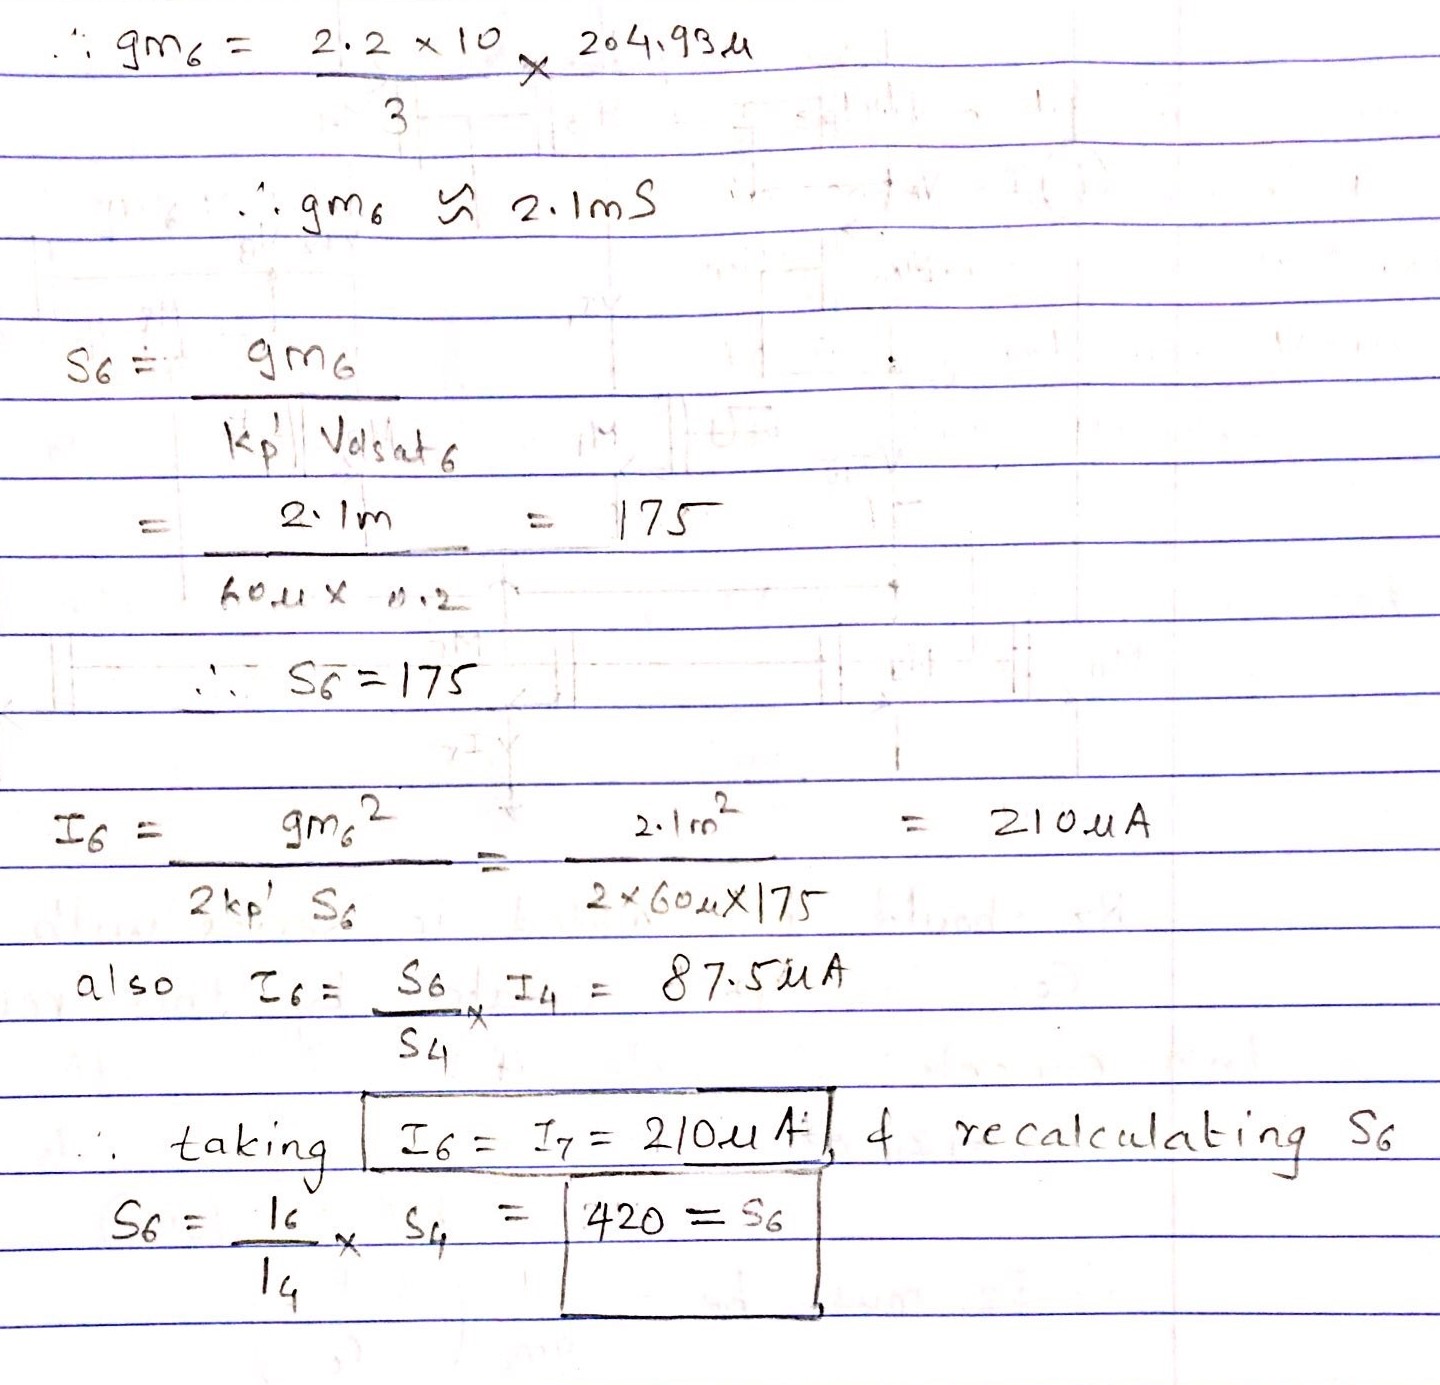 ∴ gm6 = 2.2 × 10 / 3 × 204.93µ
∴ gm6 ≈ 2.1mS
S6 = gm6 / kp' Vdsat6
= 2.1m / 60µ × 0.2 = 175
∴ S6 = 175
I6 = gm6² / 2kp' S6 = 2.1m² / 2×60µ×175 = 210µA
also I6 = S6 / S4 × I4 = 87.5µA
∴ taking I6 = I7 = 210µA, & recalculating S6
S6 = I6 / I4 × S4 = 420 = S6